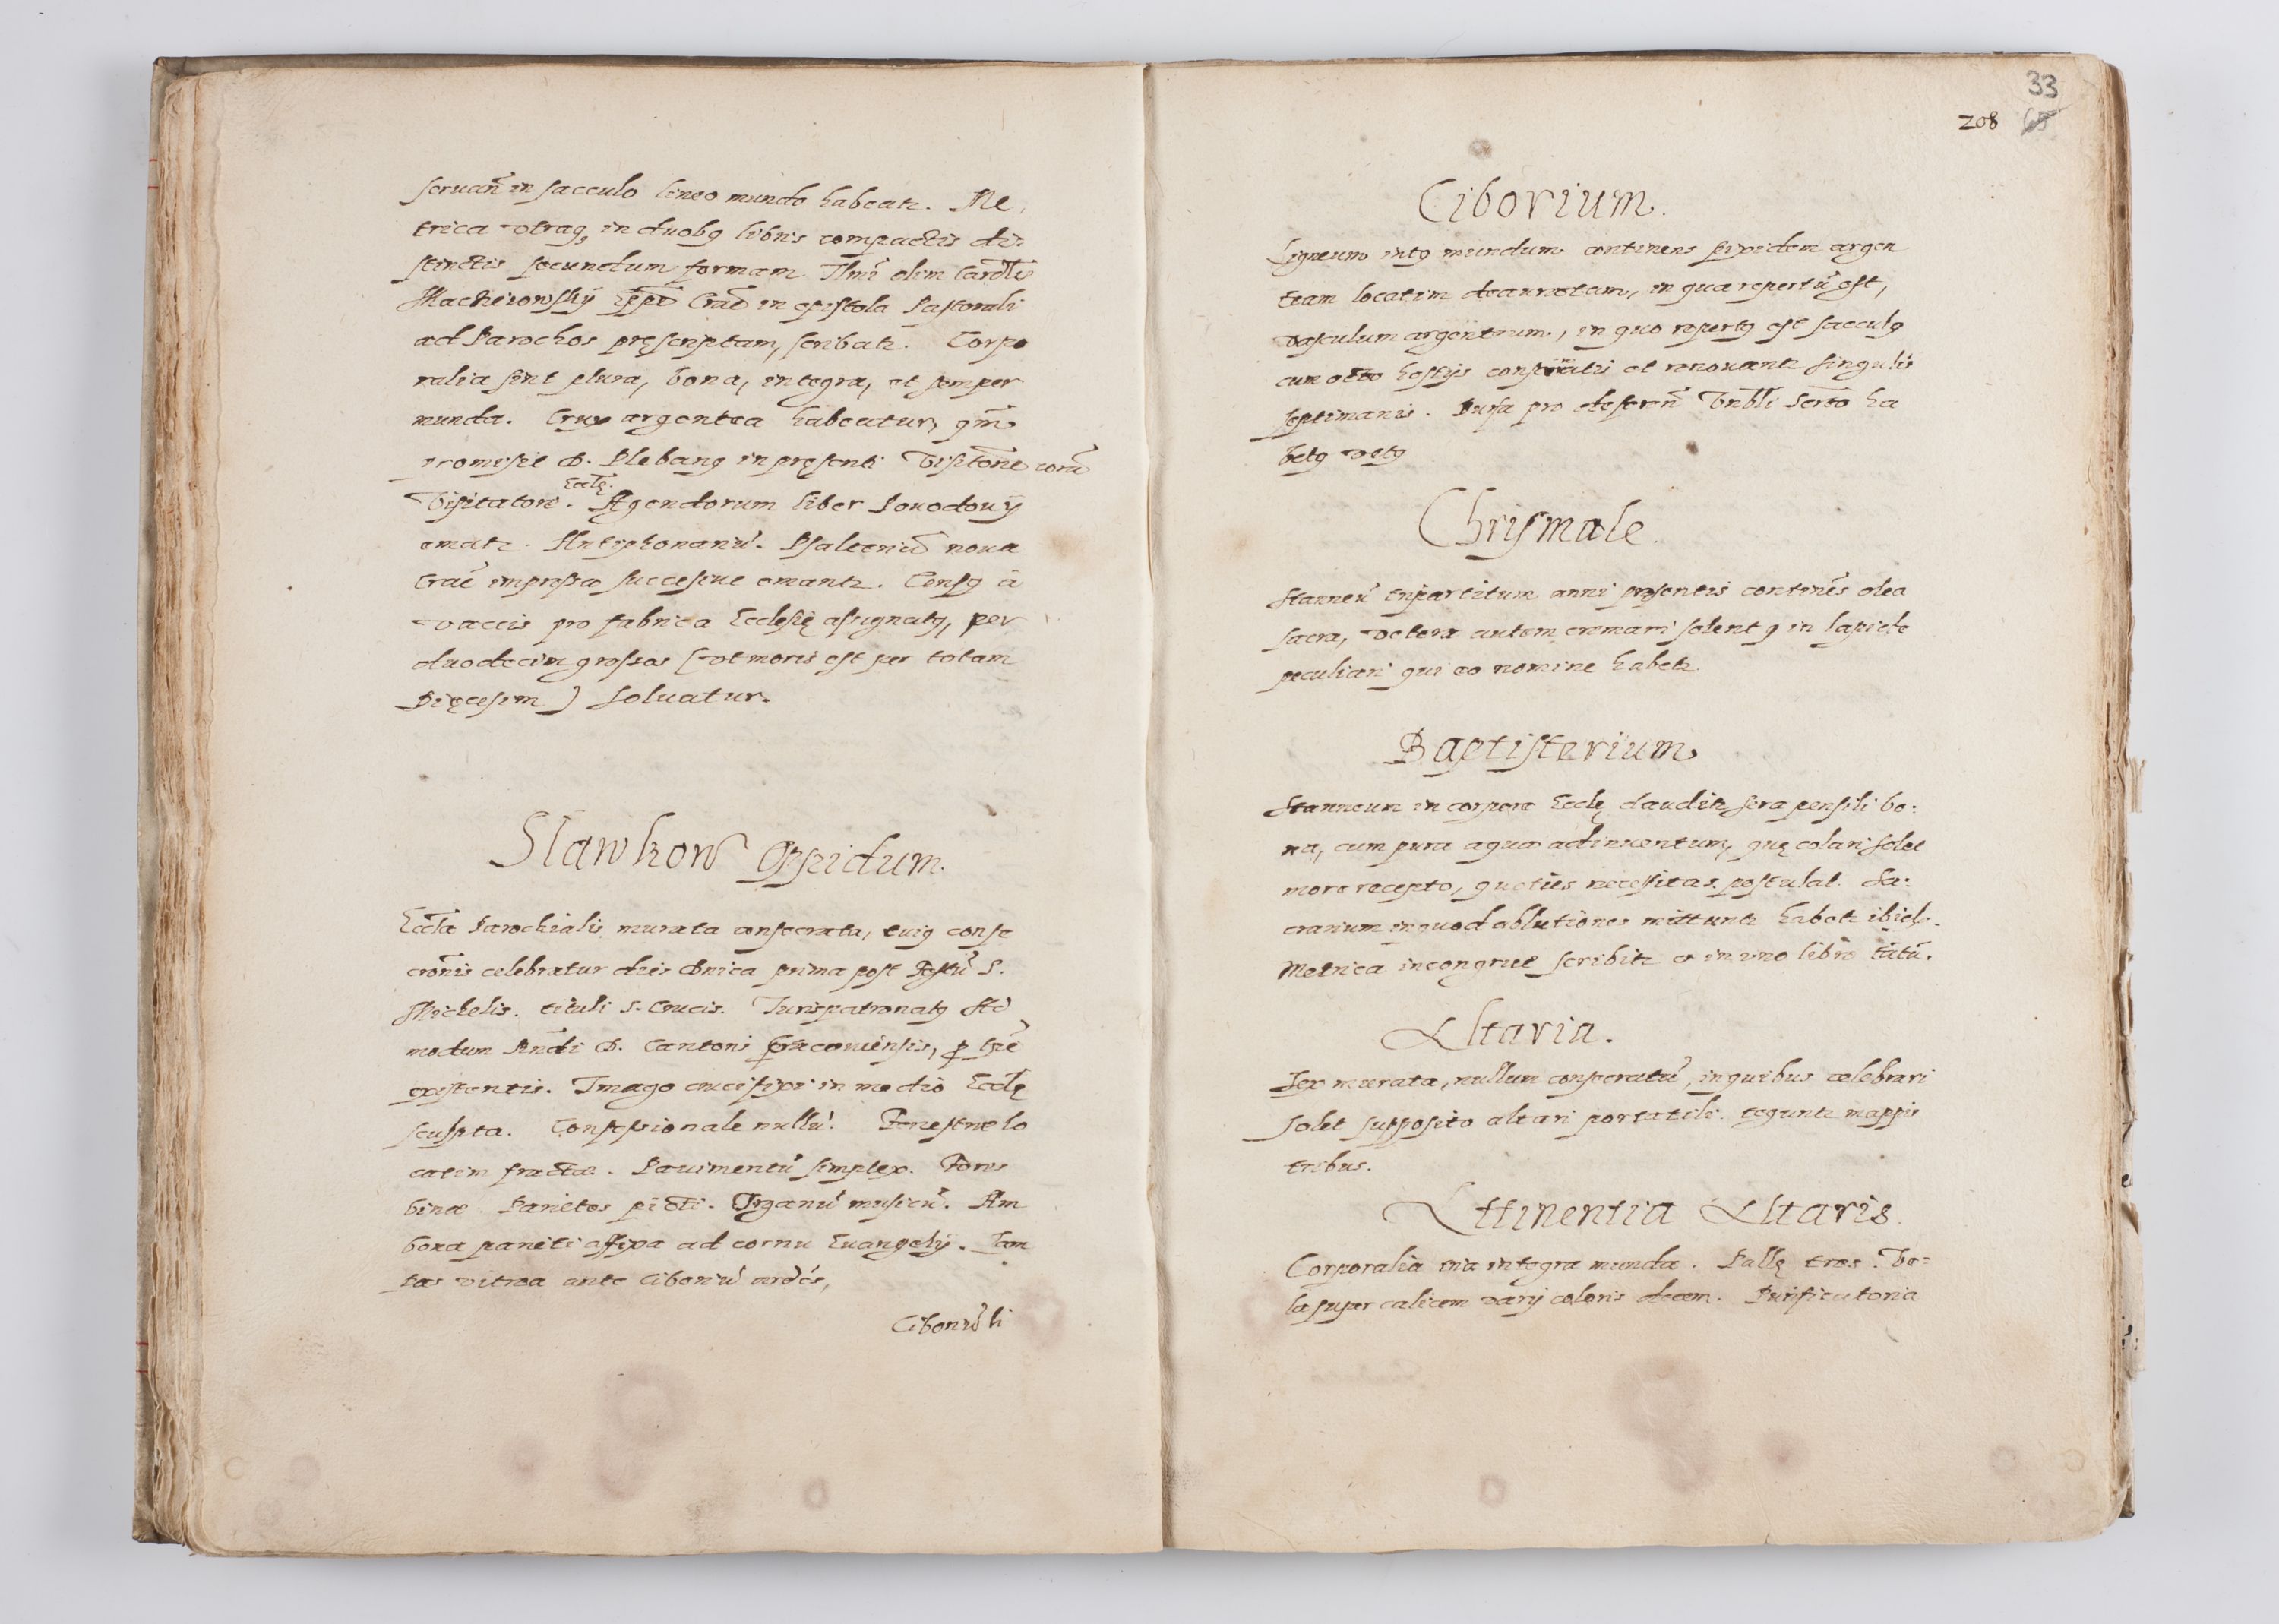 seruañ in sacculo lineo mundo habeatr. Me,
trica vtraq, in duobq libris compactis di:
stinctis secundum formam Illmi olim Cardlis
Maciieiowskÿ Eppi Crac̃ in epistola Pastorali
ad Parochos pręscriptam, scribatr. Corpo
ralia sint plura, bona, integra, et semper
munda. Crux argentea habeatur, qm̃
promisit D. Plebanq in pręsenti Visitõne corã
Visitatore. Ecclę. Agendorum liber Powodowÿ
ematr. Antiphonariũ. Psalteriũ noua
Crac̃ impressa successiue emantr. Censq à
vaccis pro fabrica Ecclesię assignatq, per
duodecim grossos (vt moris est per totam
Dięcesim) soluatur.
Slawkow Oppidum.
Eccla Parochialis murata consecrata, cuiq conse
crõnis celebratur dies Dnica prima post Festũ S.
Michelis. tituli S. Crucis. Jurispatronatq Ad
modum Rndi D. Cantoris Cracouiensis, p tp̃e
existentis. Imago crucifixi in medio Ecclę
sculpta. Confessionale nullũ. Fenestrae lo
catim fractae. Pauimentũ simplex. Fores
binae Parietes picti. Organũ musicũ. Am
bona parieti affixa ad cornu Euangelÿ. Lam
pas vitrea ante Ciboriũ ardẽs,
Ciboriũ li
33
208 65
Ciborium.
Ligneum intq mundum continens pixidem argen
team locatim deauratam, in qua repertũ est,
vasculum argenteum, in quo repertq est sacculq
cum octo hostÿs consecratis et renouantr singulis
septimanis. Bursa pro deferen̄ Vnbli Scrto ha
betq vetq
Chrismale.
Stanneũ tripartitum anni presentis continẽs olea
sacra, vetera autem cremari solent q in lapide
peculiari qui eo nomine habetr
Baptisterium
Stanneum in corpore Ecclę clauditr sera pensili bo:
na, cum pura aqua adinuentum, quę colari solet
more recepto, quoties necessitas postulat. Sa:
crarium in quod ablutiones mittuntr habetr ibid.
Metrica incongrue scribitr et in uno libro tãtũ.
Altaria.
Sex murata, nullum consecratũ, in quibus celebrari
solet supposito altari portatili. teguntr mappis
tribus.
Attinentia Altaris.
Corporalia tria integra munda. Pallę tres. Ve=
la super calicem varÿ coloris decem. Purificatoria